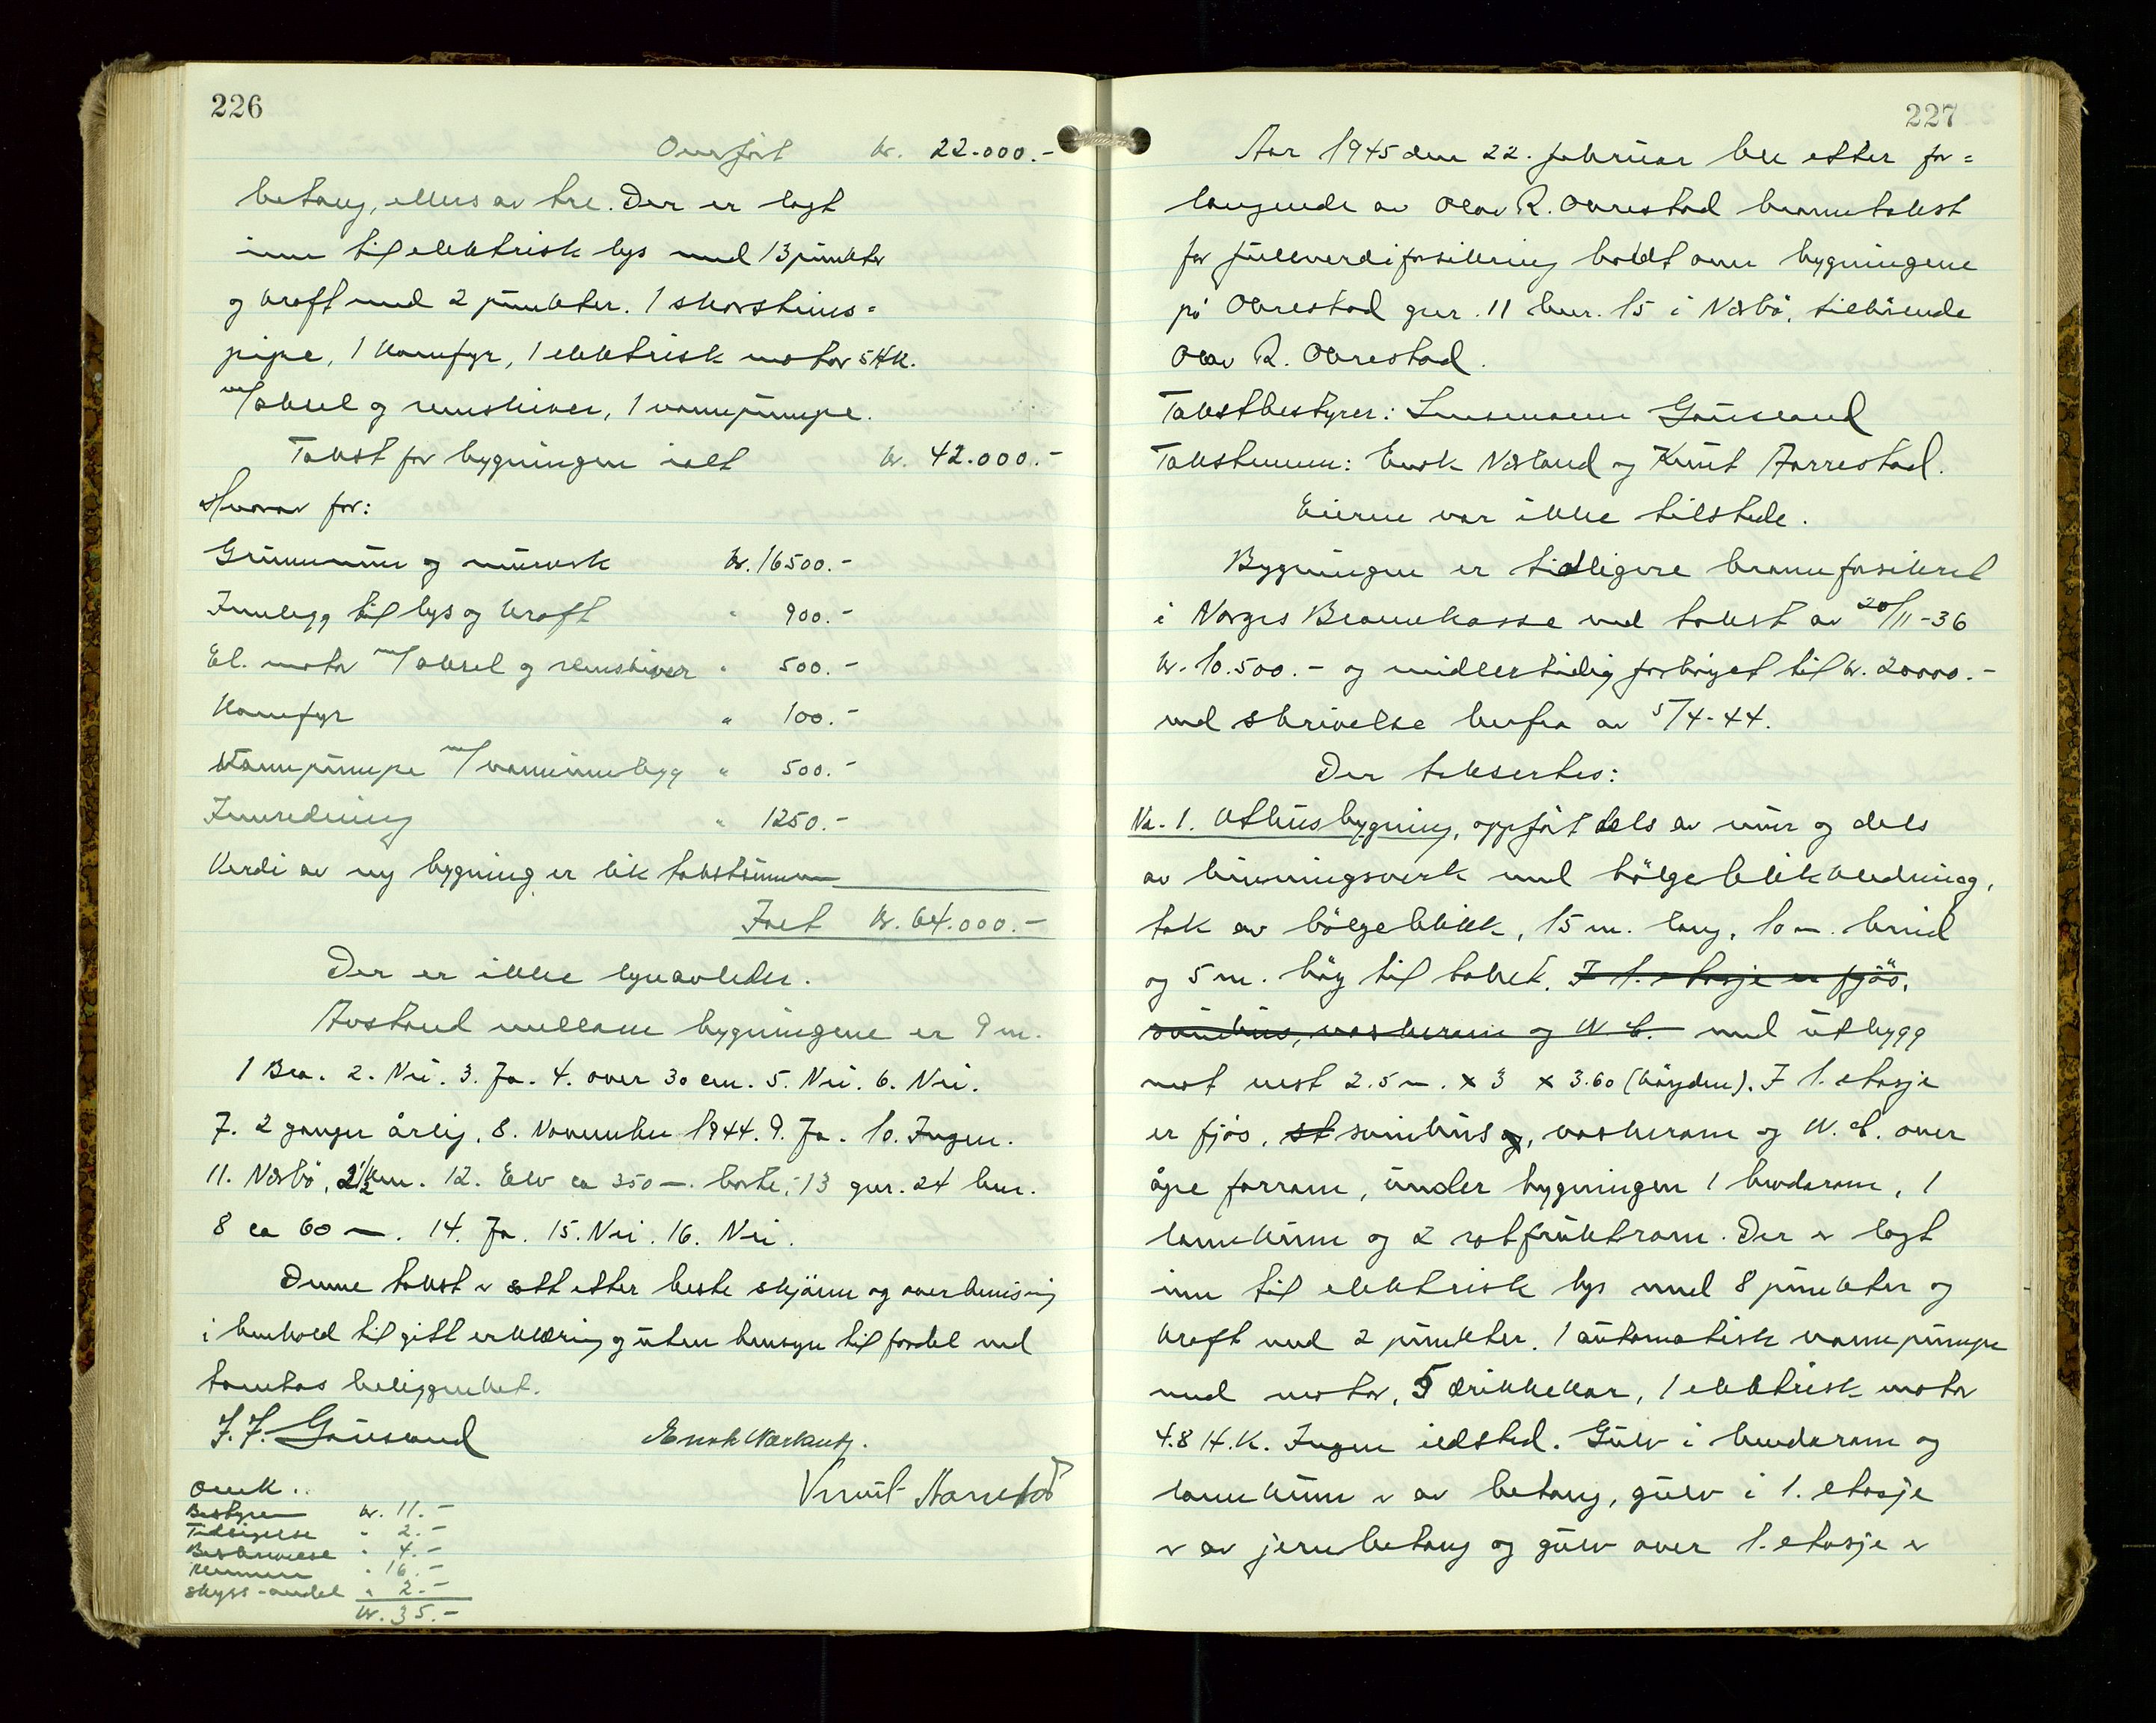 226
Overført kr. 22.000.-
betong, ellers av tre. Der er lagt
inn til elektrisk lys med 13 punkter
og kraft med 2 punkter. 1 skorsteins=
pipe, 1 kamfyr, 1 elektrisk motor 5 HK.
m/aksel og remskiver, 1 vannpumpe.
Takst for bygningen ialt kr. 42.000.-
Hvorav for:
Grunnmur og murverk kr. 16500.-
Innlegg til lys og kraft " 900.-
El. motor m/aksel og remskiver " 500.-
Kamfyr " 100.-
Vannpumpe m/vanninnlegg " 500.-
Innredning " 1250.-
Verdi av ny bygning er lik takstsummen
Ialt kr. 64.000.-
Der er ikke lynavleder.
Avstand mellom bygningene er 9 m.
1 Bra. 2. Nei. 3. Ja. 4. over 30 cm. 5. Nei. 6. Nei.
7. 2 ganger årlig. 8. November 1944. 9. Ja. 10. Ingen.
11. Nærbø, 2½ km. 12. Elv ca 350 m. borte, 13 gnr. 24 bnr.
8 ca 60 m. 14. Ja. 15. Nei. 16. Nei.
Denne takst er satt etter beste skjønn og overbevisning
i henhold til gitt erklæring og uten hensyn til fordel ved
tomtas beliggenhet.
J. F. Gausland Enok Nærland.
Knut Aarrestad
Omk..
Bestyrer kr. 11.-
Tidsigelse " 2.-
Beskrivelse " 4.-
Mennene " 16.-
Skyss-andel " 2.-
kr. 35.-
227
Aar 1945 den 22. februar ble etter for=
langende av Olav R. Obrestad branntakst
for fullverdiforsikring holdt over bygningene
på Obrestad gnr. 11 bnr. 15 i Nærbø, tilhørende
Olav R. Obrestad.
Takstbestyrer: Lensmann Gausland
Takstmenn: Enok Nærland og Knut Aarrestad.
Eieren var ikke tilstede.
Bygningen er tidligere brannforsikret
i Norges Brannkasse ved takst av 20/11-36
kr. 10.500.- og midlertidig forhøyet til kr. 20000.-
ved skrivelse herfra av 5/4-44.
Der taksertes:
Nr. 1. Uthusbygning, oppført dels av mur og dels
av bindingsverk med bølgeblikkledning,
tak av bølgeblikk, 15 m. lang, 10 m. breid
og 5 m. høg til taket. I 1. etasje er fjøs,
svinehus, vaskerom og W.C. med utbygg
mot vest 2.5 m. x 3 x 3.60 (høyden). I 1. etasje
er fjøs, st svinehus og, vaskerom og W.C. over
åpe forrom, under bygningen 1 brodarom, 1
lannkum og 2 rotfruktrom. Der er lagt
inn til elektrisk lys med 8 punkter og
kraft med 2 punkter. 1 automatisk vannpumpe
med motor, 5 drikkekar, 1 elektrisk motor
4.8 H.K. Ingen ildsted. Gulv i brodarom og
lannkum er av betong, gulv i 1. etasje
er av jernbetong og gulv over 1. etasje er